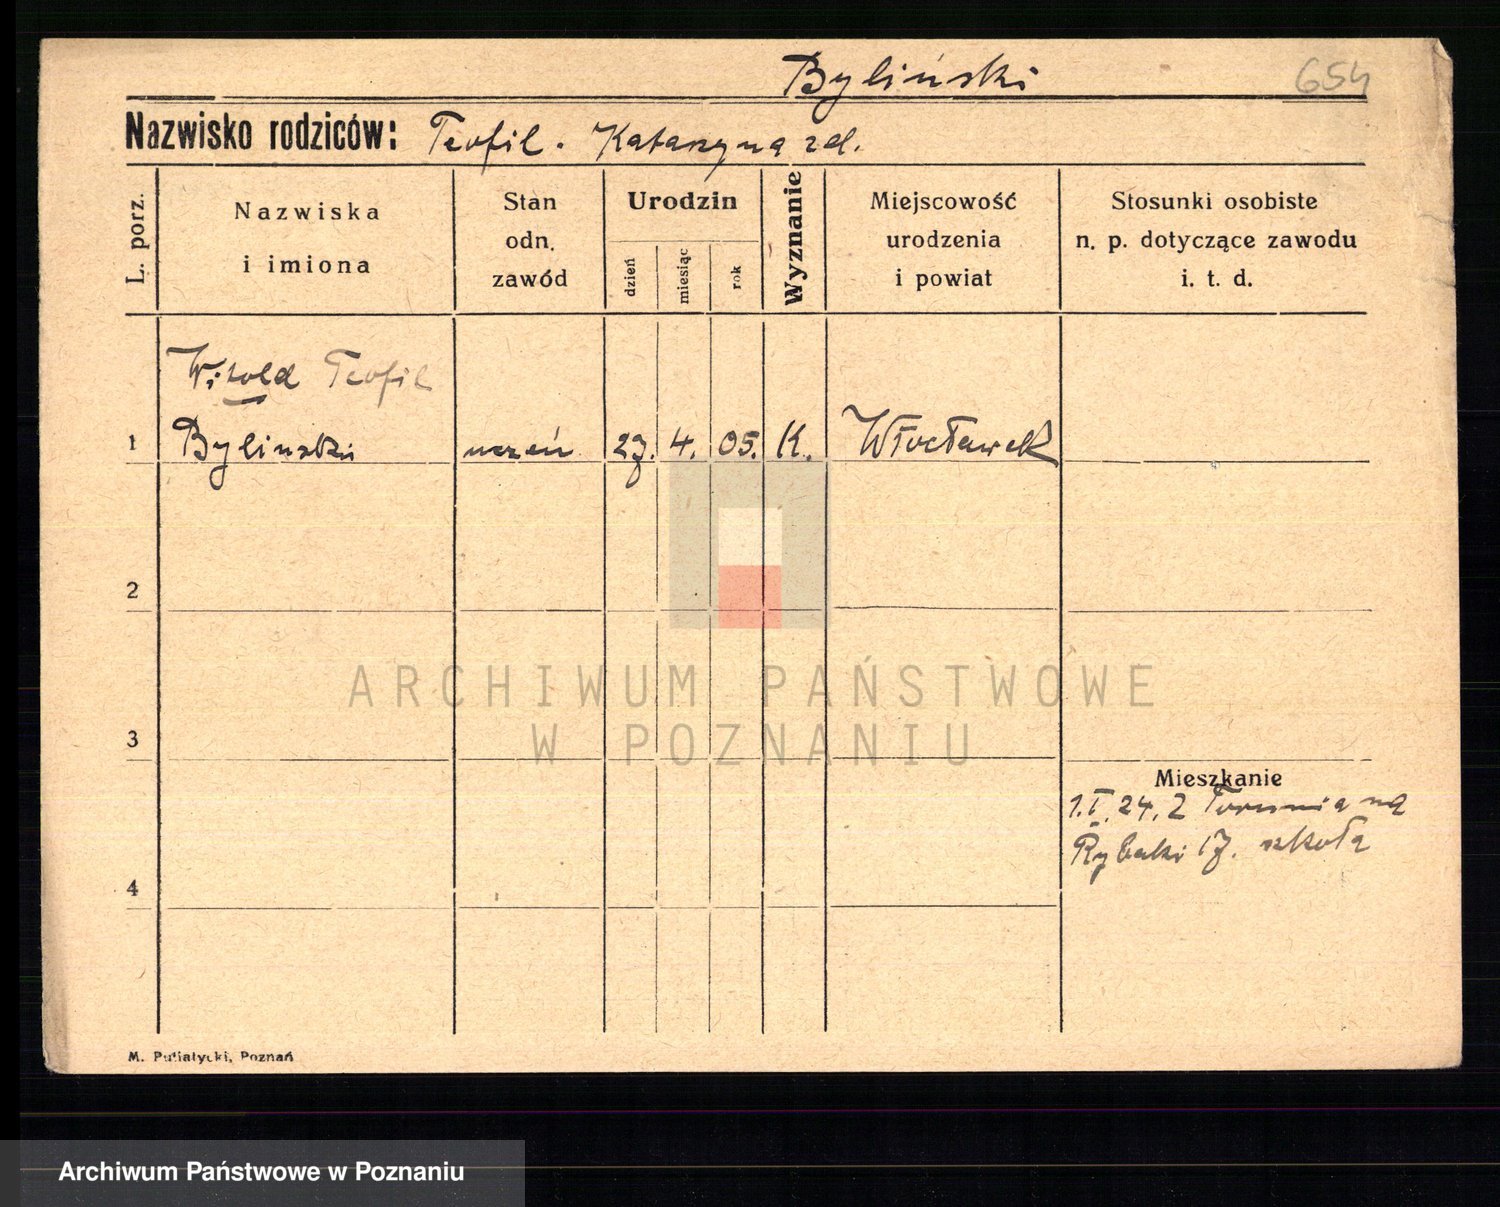 Byliński 654
Nazwisko rodziców: Teofil. Katarzyna zd.
L. porz.
Nazwiska
i imiona
Stan
odn.
zawód
Urodzin
dzień
miesiąc
rok
Wyznanie
Miejscowość
urodzenia
i powiat
Stosunki osobiste
n. p. dotyczące zawodu
i. t. d.
Witold Teofil
1 Byliński uczeń 27. 4. 05. K. Włocławek
2
ARCHIWUM PAŃSTWOWE
W POZNANIU
3
Mieszkanie
1.I.24. Z Torunia na
Rybaki 17. szkoła
4
M. Putiatycki, Poznań
Archiwum Państwowe w Poznaniu